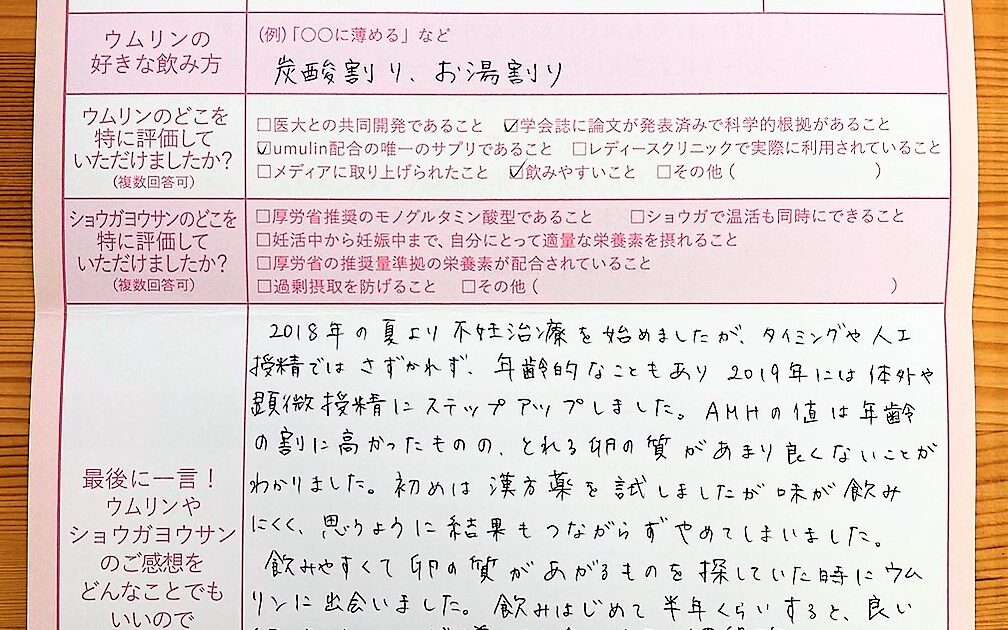 ウムリンの
好きな飲み方
(例)「○○に薄める」など
炭酸割り、お湯割り
ウムリンのどこを
特に評価して
いただけましたか?
(複数回答可)
□医大との共同開発であること ☑学会誌に論文が発表済みで科学的根拠があること
☑umulin配合の唯一のサプリであること □レディースクリニックで実際に利用されていること
□メディアに取り上げられたこと ☑飲みやすいこと □その他( )
ショウガヨウサンのどこを
特に評価して
いただけましたか?
(複数回答可)
□厚労省推奨のモノグルタミン酸型であること □ショウガで温活も同時にできること
□妊活中から妊娠中まで、自分にとって適量な栄養素を摂れること
□厚労省の推奨量準拠の栄養素が配合されていること
□過剰摂取を防げること □その他( )
最後に一言!
ウムリンや
ショウガヨウサン
のご感想を
どんなことでも
いいので
2018年の夏より不妊治療を始めましたが、タイミングや人工
授精ではさずかれず、年齢的なこともあり2019年には体外や
顕微授精にステップアップしました。AMHの値は年齢
の割に高かったものの、とれる卵の質があまり良くないことが
わかりました。初めは漢方薬を試しましたが味が飲み
にくく、思うように結果もつながらずやめてしまいました。
飲みやすくて卵の質があがるものを探していた時にウム
リンに出会いました。飲みはじめて半年くらいすると、良い